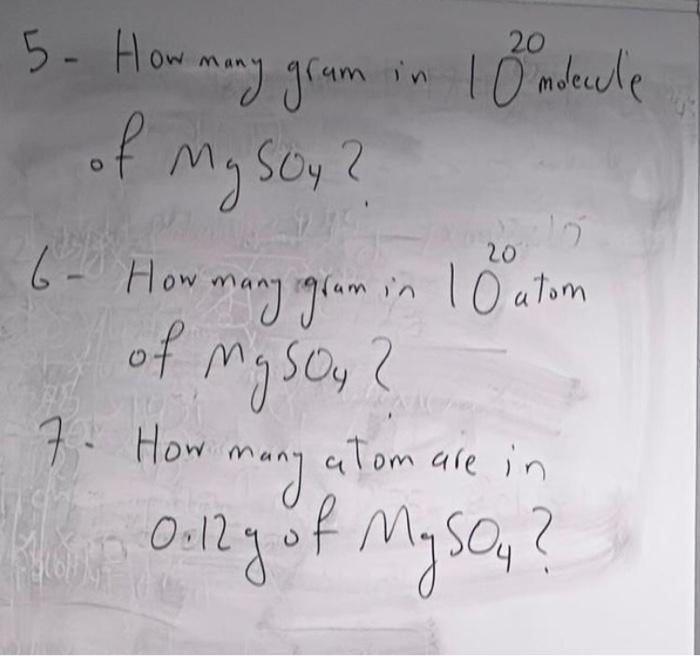 5 - How many gram in 10²⁰ molecule
of MgSO₄?
6 - How many gram in 10²⁰ atom
of MgSO₄?
7. How many atom are in
0.12g of MgSO₄?